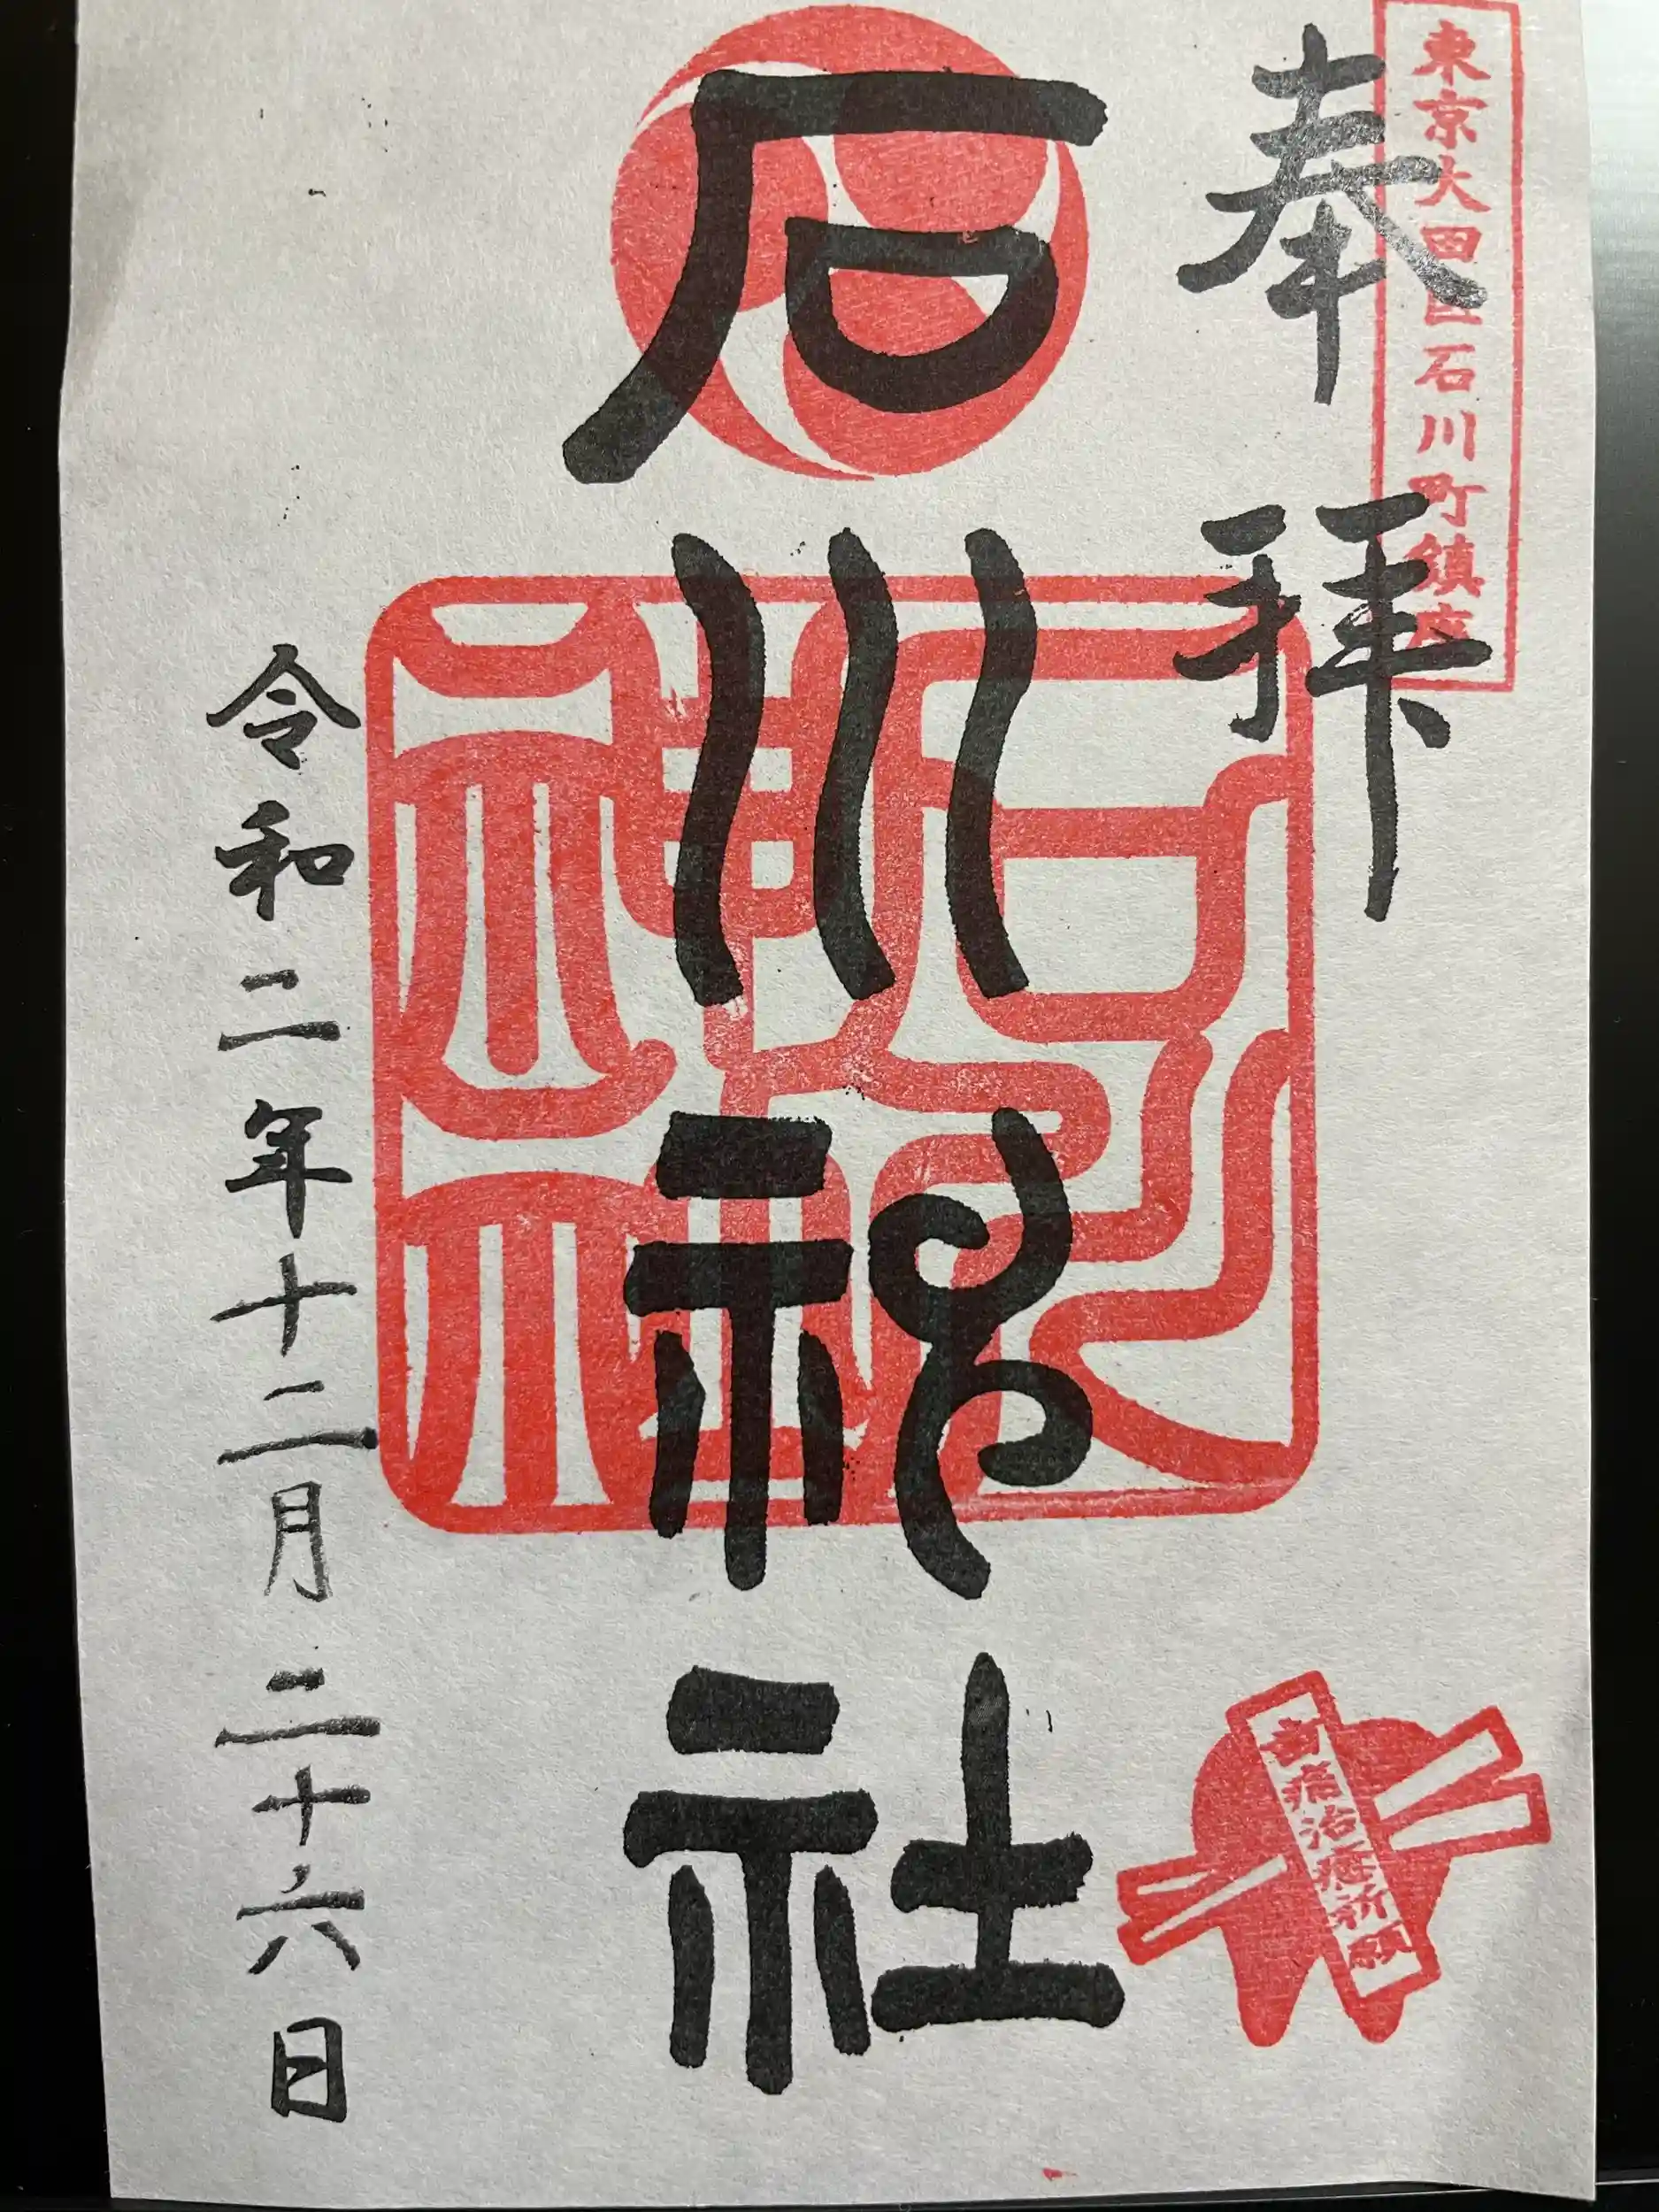 東京大田区石川町鎮座
奉拝
石川神社
歯痛治癒祈願
令和二年十二月二十六日